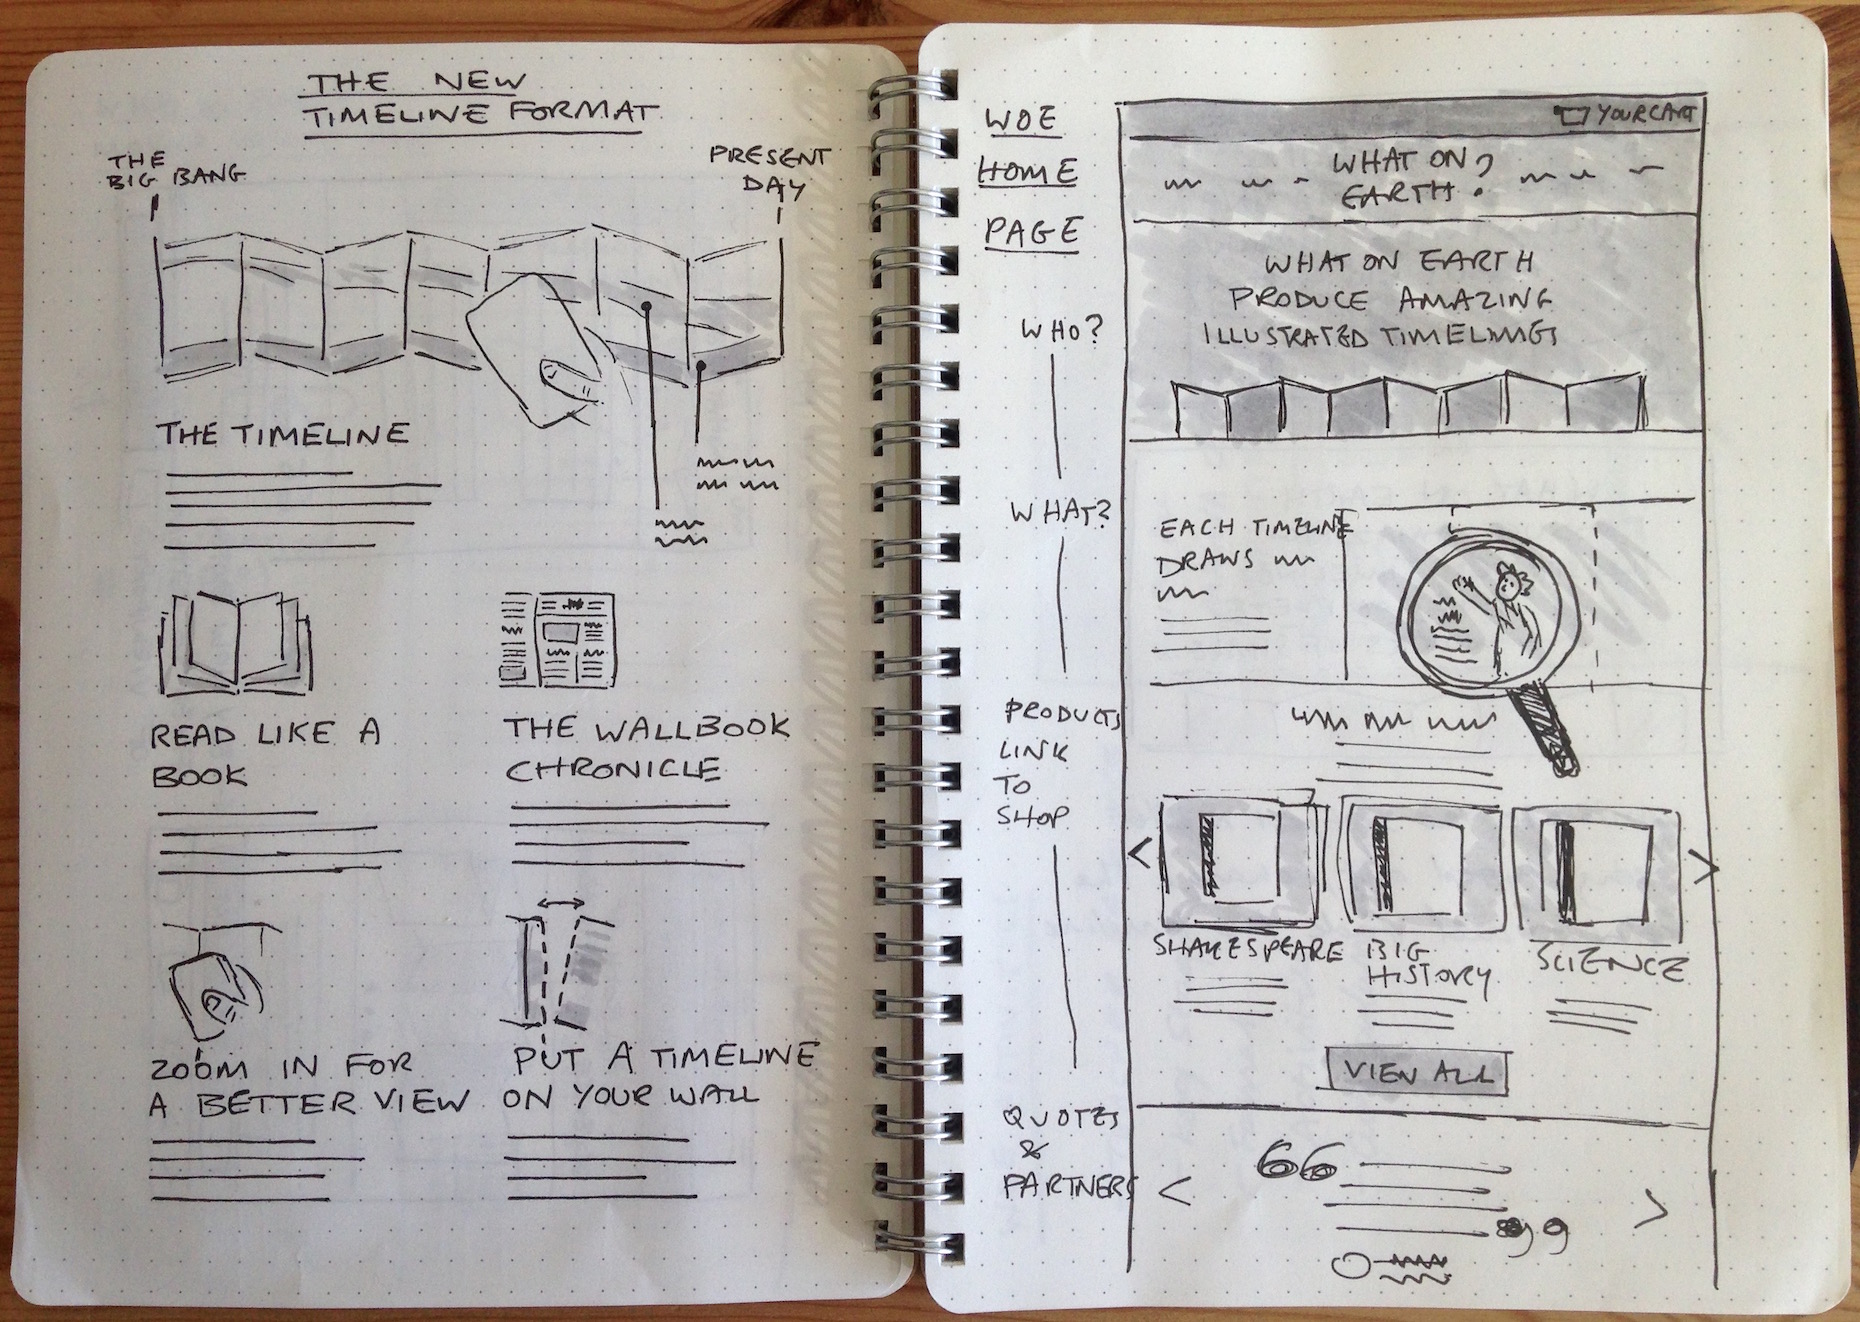 THE NEW
TIMELINE FORMAT
THE
BIG BANG
PRESENT
DAY
THE TIMELINE
READ LIKE A
BOOK
THE WALLBOOK
CHRONICLE
ZOOM IN FOR
A BETTER VIEW
PUT A TIMELINE
ON YOUR WALL
WOE
HOME
PAGE
WHO?
WHAT?
PRODUCTS
LINK
TO
SHOP
QUOTES
&
PARTNERS
YOUR CART
WHAT ON
EARTH?
WHAT ON EARTH
PRODUCE AMAZING
ILLUSTRATED TIMELINES
EACH TIMELINE
DRAWS
<
>
SHAKESPEARE
BIG
HISTORY
SCIENCE
VIEW ALL
66
<
>
99